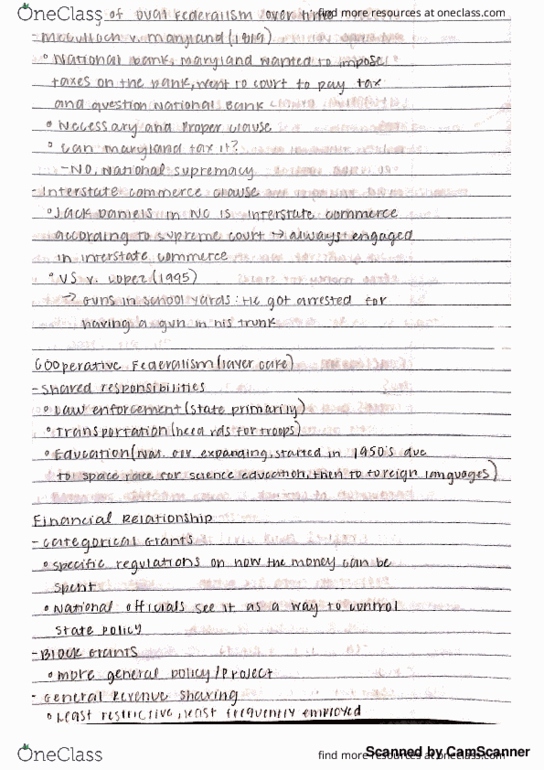 OneClass find more resources at oneclass.com
of Dual Federalism over time
- McCulloch v. Maryland (1819)
◦ National bank, Maryland wanted to impose
taxes on the bank, went to court to pay tax
and question National Bank
◦ Necessary and Proper clause
◦ Can Maryland tax it?
- NO, National supremacy
- Interstate commerce clause
◦ Jack Daniels in NC is interstate commerce
according to supreme court → always engaged
in interstate commerce
◦ US v. Lopez (1995)
→ Guns in school yards: He got arrested for
having a gun in his trunk
Cooperative Federalism (layer cake)
- Shared responsibilities
◦ Law enforcement (state primarily)
◦ Transportation (need rds for troops)
◦ Education (Nat. gov expanding, started in 1950's due
to space race for science education, then to foreign languages)
Financial Relationship
- Categorical Grants
◦ specific regulations on how the money can be
spent
◦ National officials see it as a way to control
state policy
- Block Grants
◦ more general policy/project
- General Revenue Sharing
◦ Least restrictive, least frequently employed
OneClass find more resources at oneclass.com
Scanned by CamScanner